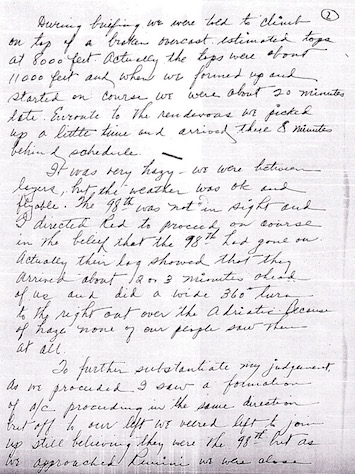 2
During briefing we were told to climb
on top of a broken overcast estimated tops
at 8000 feet. Actually the tops were about
11000 feet and when we formed up and
started on course we were about 20 minutes
late. Enroute to the rendevous we picked
up a little time and arrived there 8 minutes
behind schedule.
It was very hazy - we were between
layers, but the weather was ok and
flyable. The 98th was not in sight and
I directed Red to proceed on course
in the belief that the 98th had gone on.
Actually their log showed that they
arrived about 2 or 3 minutes ahead
of us and did a wide 360° turn
to the right out over the Adriatic. Because
of haze none of our people saw them
at all.
To further substantiate my judgement,
as we proceeded I saw a formation
of a/c proceeding in the same direction
but off to our left we veered left to join
up still believing they were the 98th but as
we approached Rimini we were close